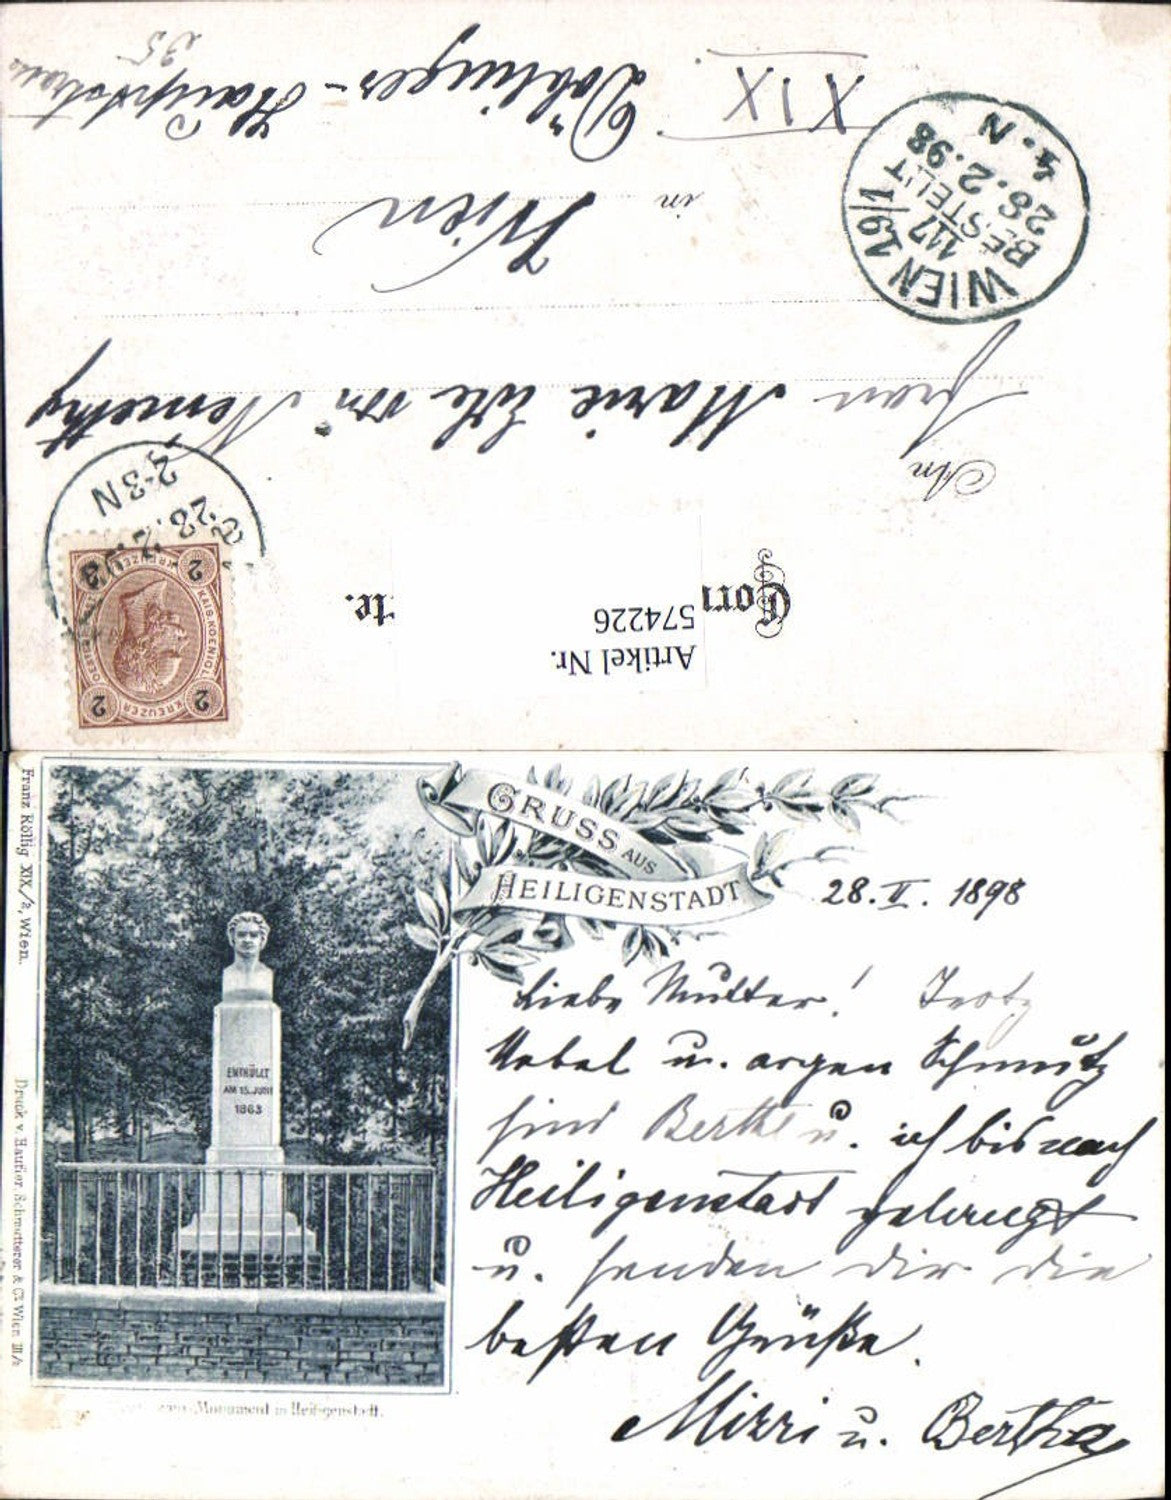 Artikel Nr.
574226
An
Frau Marie Edle von Nemethy
in Wien
XIX. Döblinger-Hauptstrasse
35
WIEN 19/1
117
BESTELLT
28.2.98
4.N
28.2.
2-3N
2 KREUZER 2
KAIS. KOENIGL.
2 KREUZER 2
GRUSS AUS
HEILIGENSTADT
28. II. 1898
Liebe Mutter! Trotz
Nebel u. argen Schmutz
sind Bertha u. ich bis nach
Heiligenstadt gelangt
u. senden dir die
besten Grüße.
Mizzi u. Bertha
ENTHÜLLT
AM 15. JUNI
1863
Monument in Heiligenstadt.
Franz Röllig XIX/2, Wien.
Druck v. Haufler Schmutterer & Co Wien III/2